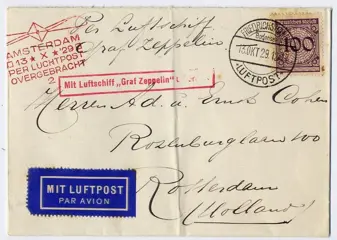 AMSTERDAM
13 * X * 29
PER LUCHTPOST
OVERGEBRACHT
2
Per Luftschiff
Graf Zeppelin
Mit Luftschiff „Graf Zeppelin"
FRIEDRICHSHAFEN
13.OKT 29
LUFTPOST
100
Herren Ad. u Ernst Cohen
Rotterdam
(Holland)
MIT LUFTPOST
PAR AVION